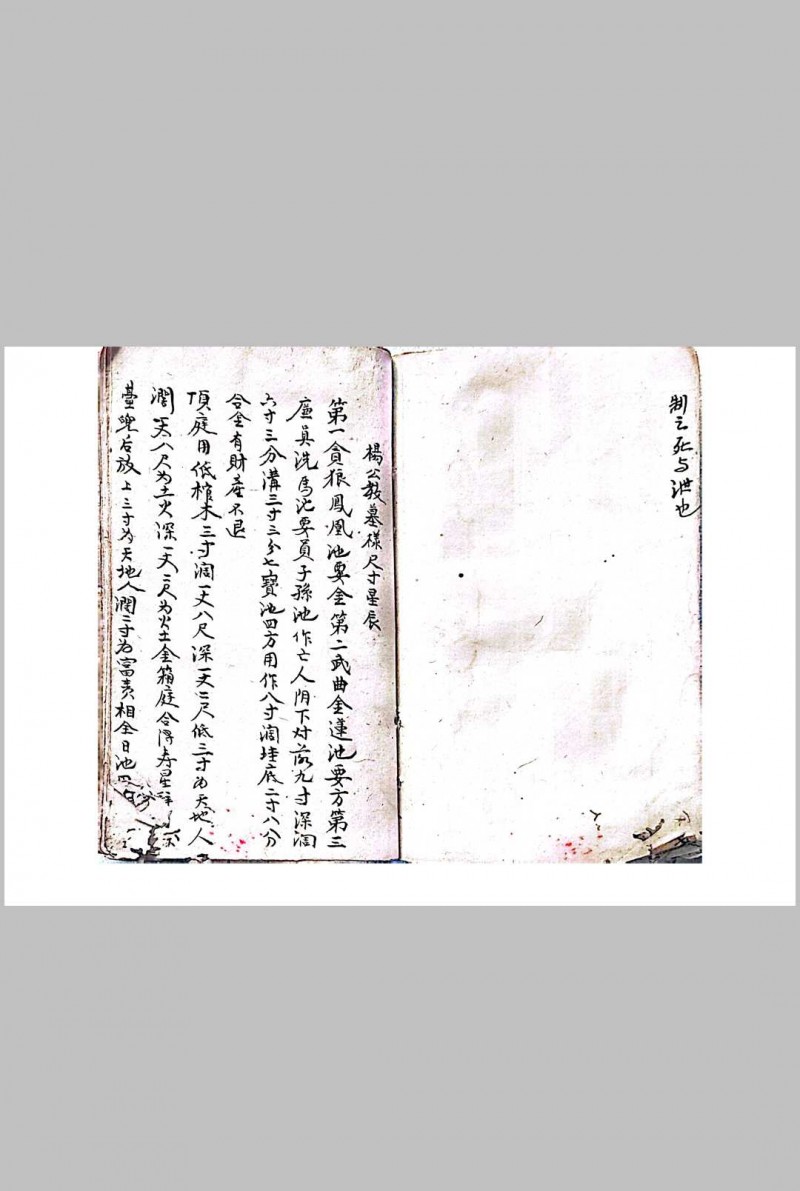 制之死与洪也
楊公教墓样尺寸星辰
第一貪狼鳳凰池要金第二武曲金蓮池要方第三
廉貞洗馬池要員子孫池作亡人阴下对前九寸深阔
六寸三分溝三寸三分七寶池四方用作八寸阔培底二寸八分
合金有財產不退
頂庭用低棺木三寸阔一丈八尺深一丈二尺低三寸为天地人
濶一丈八尺为土火深一丈二尺为火土金箱庭合得寿星
臺兜后放上三寸为天地人濶三寸为富贵相全日池四